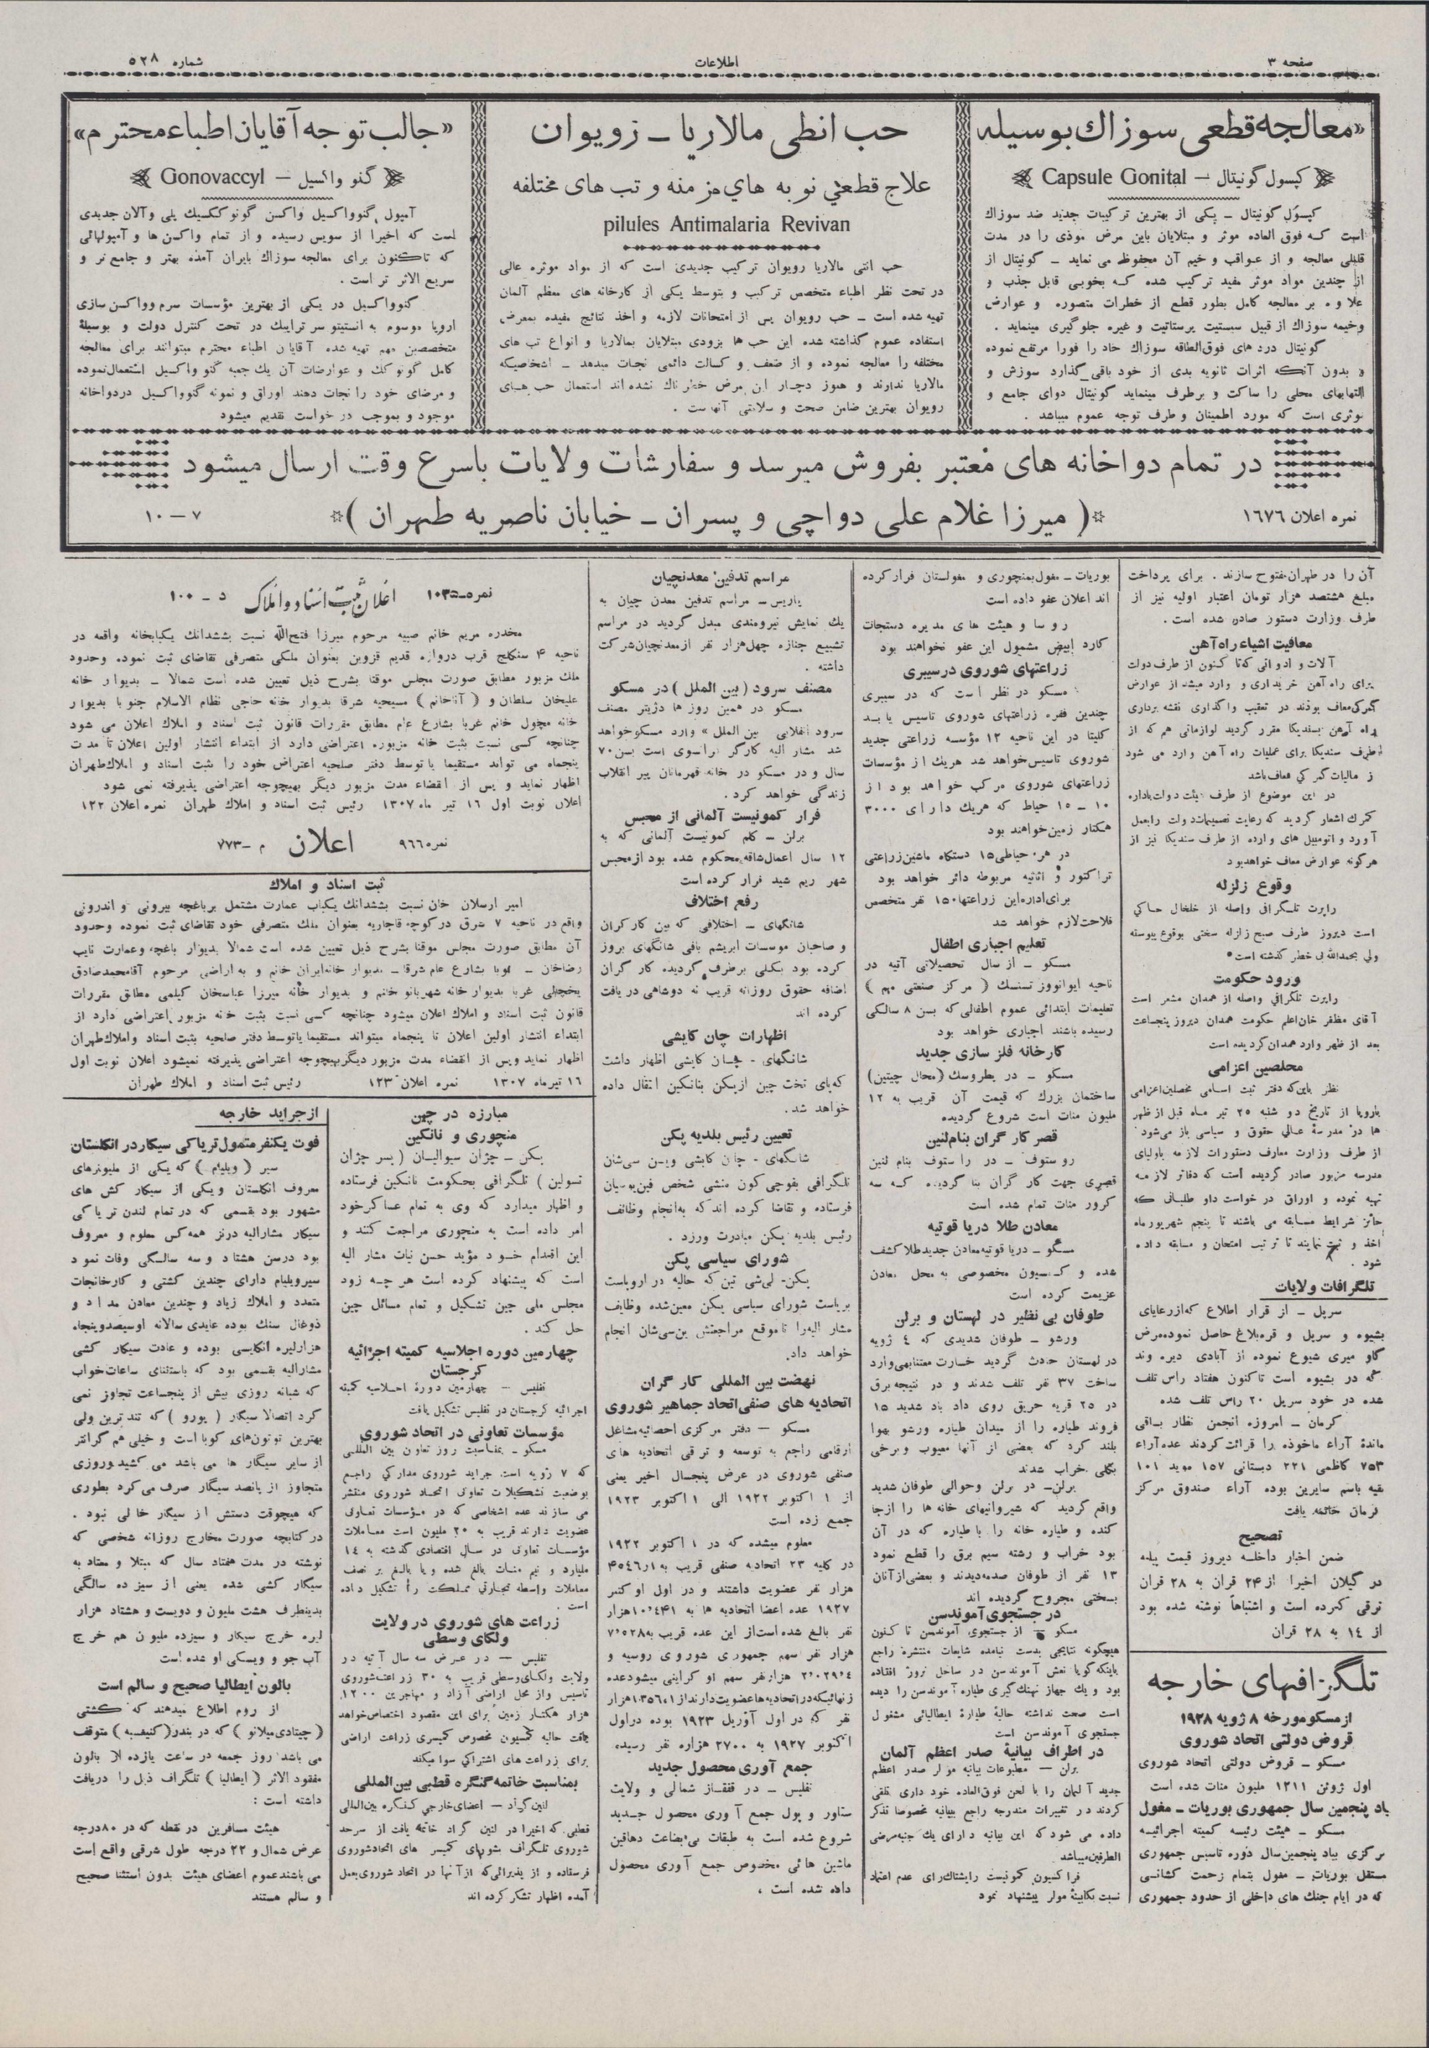 صفحه ۳
اطلاعات
شماره ۵۲۸
«معالجه قطعی سوزاك بوسیله
کپسول گونیتال – Capsule Gonital
کپسول گونیتال – یکی از بهترین ترکیبات جدید ضد سوزاك
است کـه فوق العاده موثر و مبتلایان باین مرض موذی را در مدت
قلیلی معالجه و از عواقب و خیم آن محفوظ می نماید – گونیتال از
از چندین مواد موثر مفید ترکیب شده کـه بخوبی قابل جذب و
علاوه بر معالجه کامل بطور قطع از خطرات متصوره و عوارض
وخیمه سوزاك از قبیل سیستیت پرستاتیت و غیره جلوگیری مینماید .
گونیتال درد های فوق‌الطاقه سوزاك حاد را فورا مرتفع نموده
و بدون آنکه اثرات ثانویه بدی از خود باقی گذارد سوزش و
التهابهای محلی را ساکت و برطرف مینماید گونیتال دوای جامع و
موثری است که مورد اطمینان و طرف توجه عموم میباشد .
حب انطی مالاریا – زویوان
علاج قطعی نوبه های مزمنه و تب های مختلفه
pilules Antimalaria Revivan
حب انتی مالاریا رویوان ترکیب جدیدی است که از مواد موثره عالی
در تحت نظر اطباء متخصص ترکیب و بتوسط یکی از کارخانه های معظم آلمان
تهیه شده است – حب رویوان پس از امتحانات لازمه و اخذ نتائج مفیده بمعرض
استفاده عموم گذاشته شده این حب ها بزودی مبتلایان بمالاریا و انواع تب های
مختلفه را معالجه نموده و از ضعف و کسالت دائمی نجات میدهد – اشخاصیکه
مالاریا ندارند و هنوز دچار این مرض خطرناك نشده اند استعمال حب هـای
رویوان بهترین ضامن صحت و سلامتی آنهاست .
«جالب توجه آقایان اطباء محترم»
گنو واکسیل – Gonovaccyl
آمپول گنوواکسیل واکسن گونوککسیك پلی والان جدیدی
است که اخیرا از سویس رسیده و از تمام واکسن ها و آمپولهائی
که تاکنون برای معالجه سوزاك بایران آمده بهتر و جامع تر و
سریع الاثر تر است .
گنوواکسیل در یکی از بهترین مؤسسات سرم وواکسن سازی
اروپا موسوم به انستیتو سرتراپیك در تحت کنترل دولت و بوسیلهٔ
متخصصین مهم تهیه شده آقایان اطباء محترم میتوانند برای معالجه
کامل گونوکك و عوارضات آن یك جعبه گنو واکسیل استعمال‌نموده
و مرضای خود را نجات دهند اوراق و نمونه گنوواکسیل دردواخانه
موجود و بموجب درخواست تقدیم میشود
در تمام دواخانه های معتبر بفروش میرسد و سفارشات ولایات باسرع وقت ارسال میشود
نمره اعلان ۱۶۷۶
( میرزا غلام علی دواچی و پسران – خیابان ناصریه طهران )
۷ – ۱۰
آن را در طهران مفتوح سازند . برای پرداخت
مبلغ هشتصد هزار تومان اعتبار اولیه نیز از
طرف وزارت دستور صادر شده است .
معافیت اشیاء راه آهن
آلات و ادواتی که تا کنون از طرف دولت
برای راه آهن خریداری و وارد میشد از عوارض
گمرکی معاف بودند در تعقیب واگذاری نقشه برداری
راه آهن بسندیکا مقرر گردید لوازماتی هم که از
طرف سندیکا برای عملیات راه آهن وارد می شود
از مالیات گمرکی معاف باشد
در این موضوع از طرف هیئت دولت باداره
گمرك اشعار گردید که رعایت تصمیمات دولت را بعمل
آورد و اتومبیل های وارده از طرف سندیکا نیز از
هرگونه عوارض معاف خواهد بود
وقوع زلزله
راپرت تلگرافی واصله از خلخال حاکی
است دیروز طرف صبح زلزله سختی بوقوع پیوسته
ولی بحمدالله بی خطر گذشته است
ورود حکومت
راپرت تلگرافی واصله از همدان مشعر است
آقای مظفر خان اعلم حکومت همدان دیروز پنجساعت
بعد از ظهر وارد همدان گردیده است
محلصین اعزامی
نظر باینکه دفتر ثبت اسامی محصلین اعزامی
باروپا از تاریخ دو شنبه ۲۵ تیر ماه قبل از ظهر
ها در مدرسهٔ عالی حقوق و سیاسی باز می‌شود
از طرف وزارت معارف دستورات لازمه باولیای
مدرسه مزبور صادر گردیده است که دفاتر لازمـه
تهیه نموده و اوراق در خواست داو طلبانی که
حائز شرایط مسابقه می باشند تا پنجم شهریورماه
اخذ و ثبت نمایند تا ترتیب امتحان و مسابقه داده
شود .
تلگرافات ولایات
سرپل – از قرار اطلاع که از رعایای
بشیوه و سرپل و قره‌بلاغ حاصل نموده مرض
گاو میری شیوع نموده از آبادی دیره وند
که در بشیوه است تاکنون هفتاد راس تلف
شده در خود سرپل ۲۰ راس تلف شده
کرمان – امروزه انجمن نظار بـاقی
ماندهٔ آراء ماخوذه را قرائت کردند عده آراء
۷۵۳ کاظمی ۲۲۱ دبستانی ۱۵۷ موید ۱۰۱
بقیه باسم سایرین بوده آراء صندوق مرکز
فرمان خاتمه یافت
تصحیح
ضمن اخبار داخلـه دیروز قیمت پیله
در گیلان اخیرا از ۲۴ قران به ۲۸ قران
ترقی کرده است و اشتباهاً نوشته شده بود
از ۱۴ به ۲۸ قران
تلگرافهای خارجه
از مسکو مورخه ۸ ژویه ۱۹۲۸
قروض دولتی اتحاد شوروی
مسکو – قروض دولتی اتحاد شوروی
اول ژوئن ۱۳۱۱ ملیون منات شده است
یاد پنجمین سال جمهوری بوریات – مغول
مسکو – هیئت رئیسه کمیته اجرائیـه
مرکزی بیاد پنجمین سال دوره تاسیس جمهوری
مستقل بوریات – مغول بتمام زحمت کشانـی
که در ایام جنك های داخلی از حدود جمهوری
بوریات – مغول بمنچوری و مغولستان فرار کرده
اند اعلان عفو داده است
روسا و هیئت های مدیره دستجات
گارد ابیض مشمول این عفو نخواهند بود
زراعتهای شوروی در سیبری
مسکو در نظر است که در سیبری
چندین فقره زراعتهای شوروی تاسیس یابـد
کلیتا در این ناحیه ۱۲ مؤسسه زراعتی جدید
شوروی تاسیس خواهد شد هریك از مؤسسات
زراعتهای شوروی مرکب خواهد بود از
۱۰ – ۱۵ حیاط که هریك دارای ۳۰۰۰
هکتار زمین خواهند بود
در هر حیاطی ۱۵ دستگاه ماشین زراعتی
تراکتور و اثاثیه مربوطه دائر خواهد بود
برای اداره این زراعتها ۱۵۰ نفر متخصص
فلاحت لازم خواهد شد
تعلیم اجباری اطفال
مسکو – از سال تحصیلاتی آتیه در
ناحیه ایوانووزتسنسك ( مرکز صنعتی مهم )
تعلیمات ابتدائی عموم اطفالی که بسن ۸ سالگی
رسیده باشند اجباری خواهد بود
کارخانه فلز سازی جدید
مسکو – در پطروسك (محال چیتین)
ساختمان بزرك که قیمت آن قریب به ۱۲
ملیون منات است شروع گردیده
قصر کارگران بنام لنین
روستوف – در راستوف بنام لنین
قصری جهت کارگران بنا گردیده که سه
کرور منات تمام شده است
معادن طلا دریا قوتیه
مسکو – در یا قوتیه معادن جدید طلا کشف
شده و کمیسیون مخصوصی به محل معادن
عزیمت کرده است
طوفان بی نظیر در لهستان و برلن
ورشو – طوفان شدیدی که ٤ ژویه
در لهستان حادث گردید خسارت معتنابهی وارد
ساخت ۳۷ نفر تلف شدند و در نتیجه برق
در ۲۵ قریه حریق روی داد باد شدید ۱۵
فروند طیاره را از میدان طیاره ورشو بهوا
بلند کرد که بعضی از آنها معیوب و برخی
بکلی خراب شدند
برلن – در برلن وحوالی طوفان شدید
واقع گردید که شیروانیهای خانه ها را از جا
کنده و طیاره خانه را با طیاره که در آن
بود خراب و رشته سیم برق را قطع نمود
۱۳ نفر از طوفان صدمه دیدند و بعضی از آنان
بسختی مجروح گردیده اند
در جستجوی آموندسن
مسکو – از جستجوی آموندسن تا کنون
هیچگونه نتایجی بدست نیامده شایعات منتشره راجع
باینکه گویا نعش آموندسن در ساحل نروژ افتاده
بود و یك جهاز نهنك گیری طیاره آموندسن را دیده
است صحت نداشته حالیه طیارهٔ ایطالیائی مشغول
جستجوی آموندسن است
در اطراف بیانیهٔ صدر اعظم آلمان
برلن – مطبوعات بیانیه مولر صدر اعظم
جدید آلمان را با لحن فوق العاده خود داری تلقی
کردند در تفسیرات مندرجه راجع ببیانیه مخصوصا تذکر
داده می شود که این بیانیه دارای یك جنبه مرضی
الطرفین میباشد
فراکسیون کمونیست رایشتاك رای عدم اعتماد
نسبت بکابینهٔ مولر پیشنهاد نمود
مراسم تدفین معدنچیان
پاریس – مراسم تدفین معدن چیان به
یك نمایش نیرومندی مبدل گردید در مراسم
تشییع جنازه چهل هزار نفر از معدنچیان شرکت
داشته .
مصنف سرود (بین الملل) در مسکو
مسکو در همین روز ها دژیتر مصنف
سرود انقلابی بین الملل» وارد مسکو خواهد
شد مشار الیه کارگر فرانسوی است بسن ۷۰
سال و در مسکو در خانه قهرمانان پیر انقلاب
زندگی خواهد کرد .
فرار کمونیست آلمانی از محبس
برلن – کلم کمونیست آلمانی که به
۱۲ سال اعمال شاقه محکوم شده بود از محبس
شهر ریم شید فرار کرده است
رفع اختلاف
شانگهای – اختلافی که بین کارگران
و صاحبان موسسات ابریشم بافی شانگهای بروز
کرده بود بکلی برطرف گردیده کار گران
اضافه حقوق روزانه قریب نه دوشاهی دریافت
کرده اند
اظهارات چان کایشی
شانگهای – چـان کایشی اظهار داشت
که پای تخت چین از پکن بنانکین انتقال داده
خواهد شد .
تعیین رئیس بلدیه پکن
شانگهای – چان کایشی وین سی شان
تلگرافی بفوجی کون منشی شخص فین یوسیان
فرستاده و تقاضا کرده اند که به انجام وظائف
رئیس بلدیه پکن مبادرت ورزد .
شورای سیاسی پکن
پکن – لی شی تین که حالیه در اروپاست
بریاست شورای سیاسی پکن معین شده وظایف
مشار الیه را تا موقع مراجعتش ین سی شان انجام
خواهد داد .
نهضت بین المللی کار گران
اتحادیه های صنفی اتحاد جماهیر شوروی
مسکو – دفتر مرکزی احصائیه مشاغل
ارقامی راجع به توسعه و ترقی اتحادیه های
صنفی شوروی در عرض پنجسال اخیر یعنی
از ۱ اکتوبر ۱۹۲۲ الی ۱ اکتوبر ۱۹۲۳
جمع زده است
معلوم میشده که در ۱ اکتوبر ۱۹۲۲
در کلیه ۲۳ اتحادیه صنفی قریب به ٤٥٤٦٫۱
هزار نفر عضویت داشتند و در اول اوکتبر
۱۹۲۷ عده اعضا اتحادیه ها به ۱۰٫٤٤۱ هزار
نفر بالغ شده است از این عده قریب به ۷٫۵۲۸
هزار نفر سهم جمهوری شوروی روسیه و
۲٫۰۲۹٫٤ هزار نفر سهم او کراینی میشود عده
زنهائیکه در اتحادیه ها عضویت دارند از ۱٫۳۵٦٫۱ هزار
نفر که در اول آوریل ۱۹۲۳ بوده در اول
اکتوبر ۱۹۲۷ به ۲۷۰۰ هزاره نفر رسیده .
جمع آوری محصول جدید
تفلیس – در قفقاز شمالی و ولایت
ستاور و پول جمع آوری محصول جـدید
شروع شده است به طبقات بی بضاعت دهاقین
ماشین هائی مخصوص جمع آوری محصول
داده شده است .
نمره ۱۰۳۵
اعلان ثبت اسناد و املاک
د – ۱۰۰
مخدره مریم خانم صبیه مرحوم میرزا فتح الله نسبت بششدانك یکبابخانه واقعه در
ناحیه ٤ سنگلج قرب دروازه قدیم قزوین بعنوان ملکی متصرفی تقاضای ثبت نموده وحدود
ملك مزبور مطابق صورت مجلس موقتا بشرح ذیل تعیین شده است شمالا – بدیوار خانه
علیخان سلطان و (آغاخانم) مسیحیه شرقا بدیوار خانه حاجی نظام الاسلام جنوبا بدیوار
خانه مچول خانم غربا بشارع عام مطابق مقررات قانون ثبت اسناد و املاك اعلان می شود
چنانچه کسی نسبت بثبت خانه مزبوره اعتراضی دارد از ابتداء انتشار اولین اعلان تا مدت
پنجماه می تواند مستقیما یا توسط دفتر صلحیه اعتراض خود را ثبت اسناد و املاك طهران
اظهار نماید و پس از انقضاء مدت مزبور دیگر بهیچوجه اعتراضی پذیرفته نمی شود
اعلان نوبت اول ۱٦ تیر ماه ۱۳۰۷ رئیس ثبت اسناد و املاك طهران نمره اعلان ۱۲۲
نمره ۹٦٦
اعلان
م – ۷۷۳
ثبت اسناد و املاك
امیر ارسلان خان نسبت بششدانك یکباب عمارت مشتمل بر باغچه بیرونی و اندرونی
واقع در ناحیه ۷ شرق در کوچه قاجاریه بعنوان ملك متصرفی خود تقاضای ثبت نموده وحدود
آن مطابق صورت مجلس موقتا بشرح ذیل تعیین شده است شمالا بدیوار باغچه وعمارت نایب
رضاخان – جنوبا بشارع عام شرقا – بدیوار خانه ایران خانم و به اراضی مرحوم آقا محمد صادق
یخچالی غربا بدیوار خانه شهربانو خانم و بدیوار خانه میرزا عباسخان کیلمی مطابق مقررات
قانون ثبت اسناد و املاك اعلان میشود چنانچه کسی نسبت بثبت خانه مزبور اعتراضی دارد از
ابتداء انتشار اولین اعلان تا پنجماه میتواند مستقیما یا توسط دفتر صلحیه بثبت اسناد واملاك طهران
اظهار نماید وپس از انقضاء مدت مزبور دیگر بهیچوجه اعتراضی پذیرفته نمیشود اعلان نوبت اول
۱٦ تیر ماه ۱۳۰۷ نمره اعلان ۱۲۳ رئیس ثبت اسناد و املاك طهران
مبارزه در چین
منچوری و نانکین
پکن – چزان سیوالیان (پسر چزان
تسولین) تلگرافی بحکومت نانکین فرستاده
و اظهار میدارد که وی به تمام عساکر خود
امر داده است به منچوری مراجعت کنند و
این اقدام خـود مؤید حسن نیات مشار الیه
است که پیشنهاد کرده است هر چـه زود
مجلس ملی چین تشکیل و تمام مسائل چین
حل کند .
چهارمین دوره اجلاسیه کمیته اجرائیه
گرجستان
تفلیس – چهارمین دورهٔ اجلاسیه کمیته
اجرائیه گرجستان در تفلیس تشکیل یافت
مؤسسات تعاونی در اتحاد شوروی
مسکو – بمناسبت روز تعاون بین المللی
که ۷ ژویه است جراید شوروی مدارکی راجع
بوضعیت تشکیلات تعاونی اتحاد شوروی منتشر
می سازند عده اشخاصی که در مؤسسات تعاونی
عضویت دارند قریب به ۲۰ ملیون است معاملات
مؤسسات تعاونی در سال اقتصادی گذشته به ۱٤
ملیارد و نیم منات بالغ شده و یا بالغ بر نصف
معاملات واسطه تجارتی مملکت را تشکیل داده
است .
زراعت های شوروی در ولایت
ولگای وسطی
تفلیس – در عـرض سه سال آتیه در
ولایت ولگای وسطی قریب به ۳۰ زراعت شوروی
تاسیس و از محل اراضی آزاد و مهاجرین ۱۲۰۰
هزار هکتار زمین برای این مقصود اختصاص خواهد
یافت حالیه کمیسیون مخصوص کمیسری زراعت اراضی
برای زراعت های اشتراکی سوا میکند
بمناسبت خاتمه کنگره قطبی بین المللی
لنین گراد – اعضای خارجی کنگره بین المللی
قطبی که اخیرا در لنین گراد خاتمه یافت از سرحد
شوروی تلگراف بشورای کمیسر های اتحاد شوروی
فرستاده و از پذیرائی که از آنها در اتحاد شوروی بعمل
آمده اظهار تشکر کرده اند
از جراید خارجه
فوت یکنفر متمول تریاکی سیگار در انگلستان
سیر (ویلیام) که یکی از ملیونرهای
معروف انگلستان ویکی از سیگار کش های
مشهور بود بقسمی که در تمام لندن تریاکی
سیگار مشارالیه در نز همه کس معلوم و معروف
بود در سن هشتاد و سه سالگی وفات نمود
سیر ویلیام دارای چندین کشتی و کارخانجات
متعدد و املاك زیاد و چندین معادن مداد و
ذوغال سنك بوده عایدی سالانه او سیصد و پنجاه
هزار لیره انگلیسی بوده و عادت سیگار کشی
مشارالیه بقسمی بود که باستثنای ساعات خواب
که شبانه روزی بیش از پنجساعت تجاوز نمی
کرد اتصالا سیگار (یورو) که تند ترین ولی
بهترین توتون های کوبا است و خیلی هم گرانتر
از سایر سیگار ها می باشد می کشید و روزی
متجاوز از پانصد سیگار صرف می کرد بطوری
که هیچوقت دستش از سیگار خالی نبود .
در کتابچه صورت مخارج روزانه شخصی که
نوشته در مدت هفتاد سال که مبتلا و معتاد به
سیگار کشی شده یعنی از سیزده سالگی
بدینطرف هشت ملیون و دویست و هشتاد هزار
لیره خرج سیگار و سیزده ملیون هم خرج
آب جو و ویسکی او شده است
بالون ایطالیا صحیح و سالم است
از روم اطلاع میدهند که کشتی
(چیتادی میلانو) که در بندر (کنیفسبه) متوقف
می باشد روز جمعه در ساعت یازده از بالون
مفقود الاثر (ایطالیا) تلگراف ذیل را دریافت
داشته است :
هیئت مسافرین در نقطه که در ۸۰ درجه
عرض شمال و ۲۲ درجه طول شرقی واقع است
می باشند عموم اعضای هیئت بدون استثنا صحیح
و سالم هستند